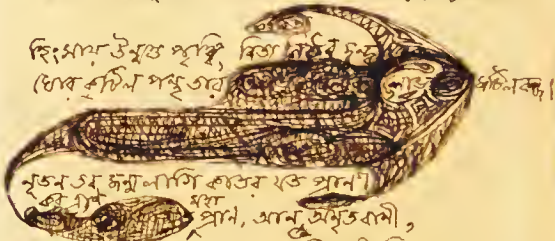 হিংসায় উন্মত্ত পৃথ্বি, নিত্য নিঠুর দ্বন্দ্ব
ঘোর কুটিল পন্থ তার জটিল বন্ধ।
নূতন তব জন্ম লাগি কাতর যত প্রাণী
কর ত্রাণ মহা
প্রাণ, আন অমৃতবাণী,